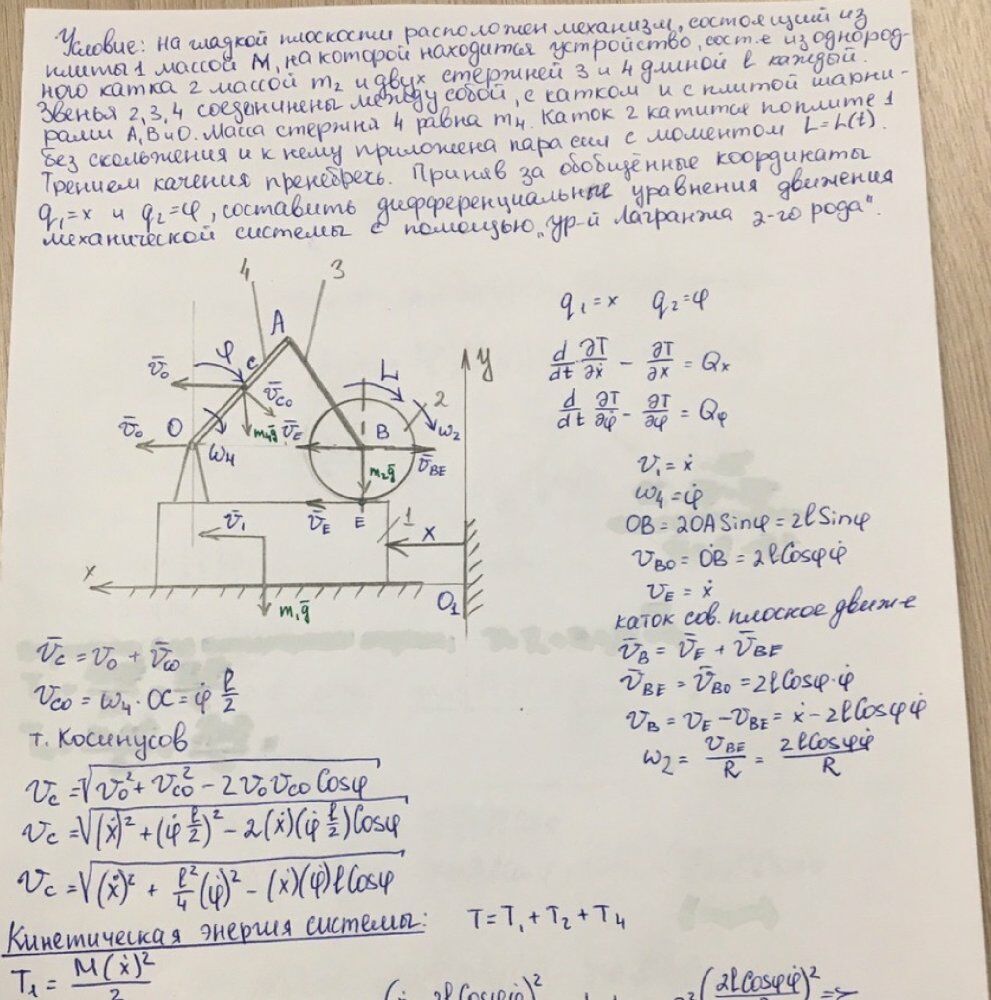 Условие: на гладкой плоскости расположен механизм, состоящий из
плиты 1 массой M, на которой находится устройство, сост-е из однород-
ного катка 2 массой m₂ и двух стержней 3 и 4 длиной ℓ каждый.
Звенья 2, 3, 4 соединены между собой, с катком и с плитой шарни-
рами A, B и O. Масса стержня 4 равна m₄. Каток 2 катится по плите 1
без скольжения и к нему приложена пара сил с моментом L=L(t).
Трением качения пренебречь. Приняв за обобщённые координаты
q₁=x и q₂=φ, составить дифференциальные уравнения движения
механической системы с помощью „ур-й Лагранжа 2-го рода".
q₁=x q₂=φ
d/dt ∂T/∂ẋ − ∂T/∂x = Qₓ
d/dt ∂T/∂φ̇ − ∂T/∂φ = Qφ
v₁=ẋ
ω₄=φ̇
OB=2OA Sinφ=2ℓSinφ
v_BO=ȮB=2ℓCosφφ̇
v_E=ẋ
каток сов. плоское движ-е
v̄_B=v̄_E+v̄_BE
v̄_BE=v̄_BO=2ℓCosφ·φ̇
v_B=v_E−v_BE=ẋ−2ℓCosφφ̇
ω₂=v_BE/R=2ℓCosφφ̇/R
4 3
A
φ C L y
v̄₀ v̄_CO 2
v̄₀ O ω₄ m₄ḡ v̄_E B ω₂
m₂ḡ v̄_BE
v̄₁ v̄_E E 1 x
x m₁ḡ O₁
v̄_C=v̄₀+v̄_CO
v_CO=ω₄·OC=φ̇ ℓ/2
т. Косинусов
v_C=√(v₀²+v_CO²−2v₀v_CO Cosφ)
v_C=√((ẋ)²+(φ̇ ℓ/2)²−2(ẋ)(φ̇ ℓ/2)Cosφ)
v_C=√((ẋ)²+ℓ²/4(φ̇)²−(ẋ)(φ̇)ℓCosφ)
Кинетическая энергия системы: T=T₁+T₂+T₄
T₁=M(ẋ)²/2